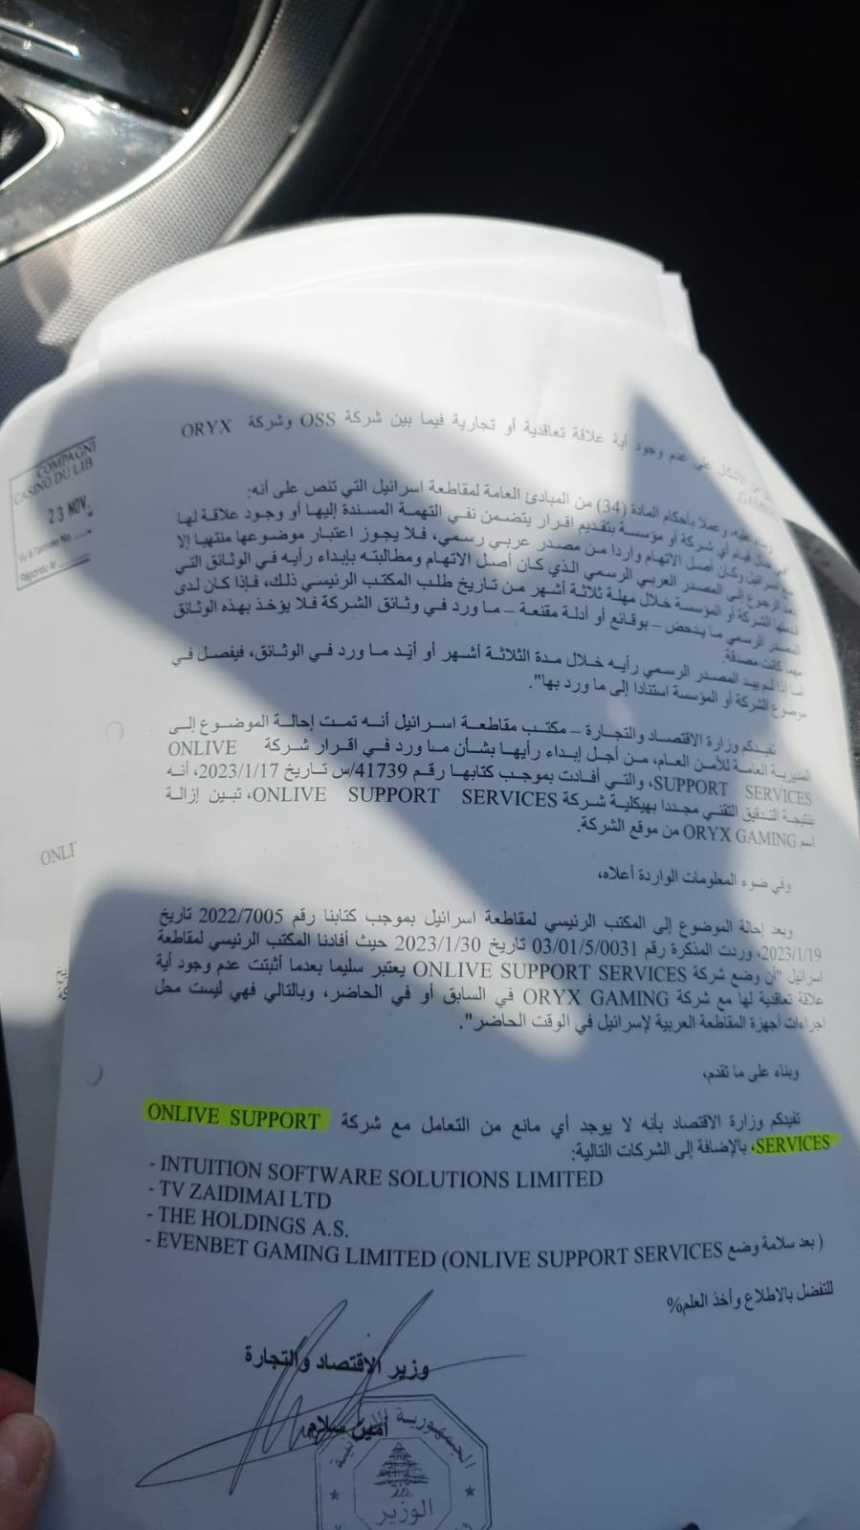 COMPAGNI
CASINO DU LIB
23 NOV.
على عدم وجود أية علاقة تعاقدية أو تجارية فيما بين شركة OSS وشركة ORYX
GAMING
وعملا بأحكام المادة (34) من المبادئ العامة لمقاطعة اسرائيل التي تنص على أنه:
قيام أي شركة أو مؤسسة بتقديم اقرار يتضمن نفي التهمة المسندة إليها أو وجود علاقة لها
اسرائيل وكان أصل الاتهام واردا من مصدر عربي رسمي، فلا يجوز اعتبار موضوعها منتهيا إلا
بعد الرجوع إلى المصدر العربي الرسمي الذي كان أصل الاتهام ومطالبته بإبداء رأيه في الوثائق التي
قدمتها الشركة أو المؤسسة خلال مهلة ثلاثة أشهر من تاريخ طلب المكتب الرئيسي ذلك، فإذا كان لدى
المصدر الرسمي ما يدحض – بوقائع أو أدلة مقنعة – ما ورد في وثائق الشركة فلا يؤخذ بهذه الوثائق
مهما كانت مصدقة.
أما إذا لم يبد المصدر الرسمي رأيه خلال مدة الثلاثة أشهر أو أيّد ما ورد في الوثائق، فيفصل في
موضوع الشركة أو المؤسسة استنادا إلى ما ورد بها".
تفيدكم وزارة الاقتصاد والتجارة – مكتب مقاطعة اسرائيل أنه تمت إحالة الموضوع إلى
المديرية العامة للأمن العام، من أجل إبداء رأيها بشأن ما ورد في اقرار شركة ONLIVE
SUPPORT SERVICES، والتي أفادت بموجب كتابها رقم 41739/س تاريخ 2023/1/17، أنه
بنتيجة التدقيق التقني مجددا بهيكلية شركة ONLIVE SUPPORT SERVICES، تبين إزالة
اسم ORYX GAMING من موقع الشركة.
ONLI
وفي ضوء المعلومات الواردة أعلاه،
وبعد إحالة الموضوع إلى المكتب الرئيسي لمقاطعة اسرائيل بموجب كتابنا رقم 2022/7005 تاريخ
2023/1/19، وردت المذكرة رقم 03/01/5/0031 تاريخ 2023/1/30 حيث أفادنا المكتب الرئيسي لمقاطعة
اسرائيل "أن وضع شركة ONLIVE SUPPORT SERVICES يعتبر سليما بعدما أثبتت عدم وجود أية
علاقة تعاقدية لها مع شركة ORYX GAMING في السابق أو في الحاضر، وبالتالي فهي ليست محل
اجراءات أجهزة المقاطعة العربية لإسرائيل في الوقت الحاضر".
وبناء على ما تقدم،
تفيدكم وزارة الاقتصاد بأنه لا يوجد أي مانع من التعامل مع شركة ONLIVE SUPPORT
SERVICES، بالإضافة إلى الشركات التالية:
- INTUITION SOFTWARE SOLUTIONS LIMITED
- TV ZAIDIMAI LTD
- THE HOLDINGS A.S.
- EVENBET GAMING LIMITED (ONLIVE SUPPORT SERVICES بعد سلامة وضع)
للتفضل بالاطلاع وأخذ العلم%
وزير الاقتصاد والتجارة
أمين سلام
الجمهورية
الوزير